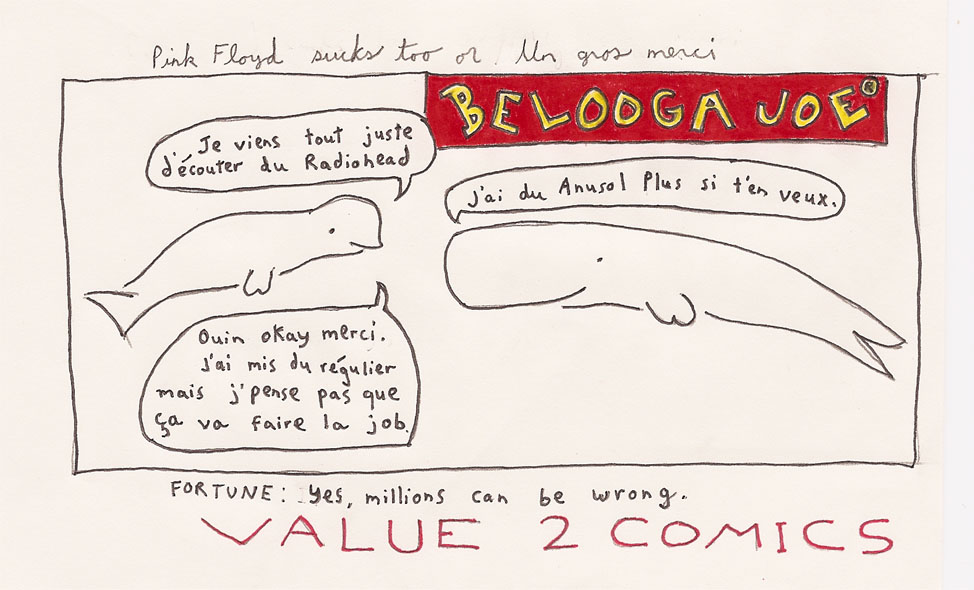 Pink Floyd sucks too or Un gros merci
BELOOGA JOE®
Je viens tout juste
d'écouter du Radiohead
J'ai du Anusol Plus si t'en veux.
Ouin okay merci.
J'ai mis du régulier
mais j'pense pas que
ça va faire la job.
FORTUNE: Yes, millions can be wrong.
VALUE 2 COMICS